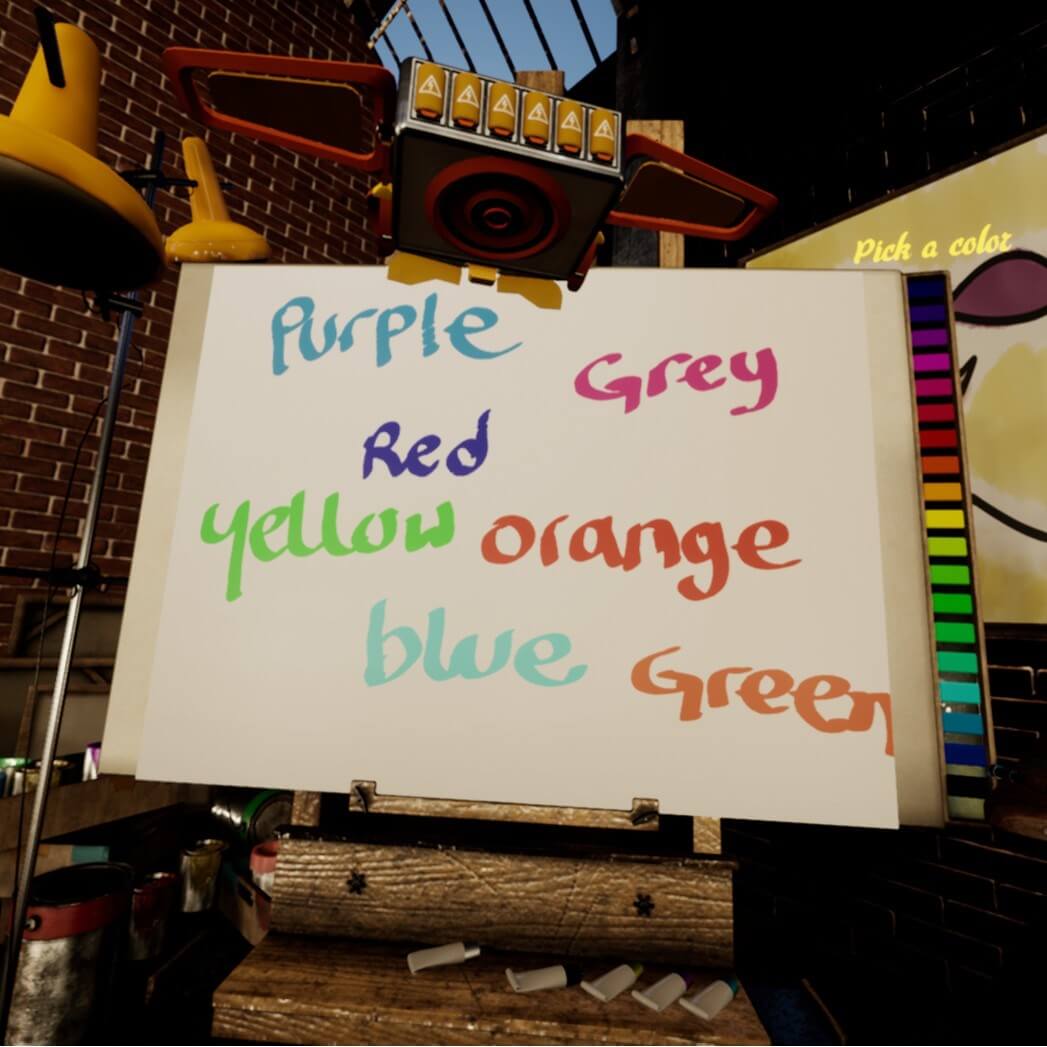 Pick a color
Purple
Grey
Red
yellow orange
blue
Green